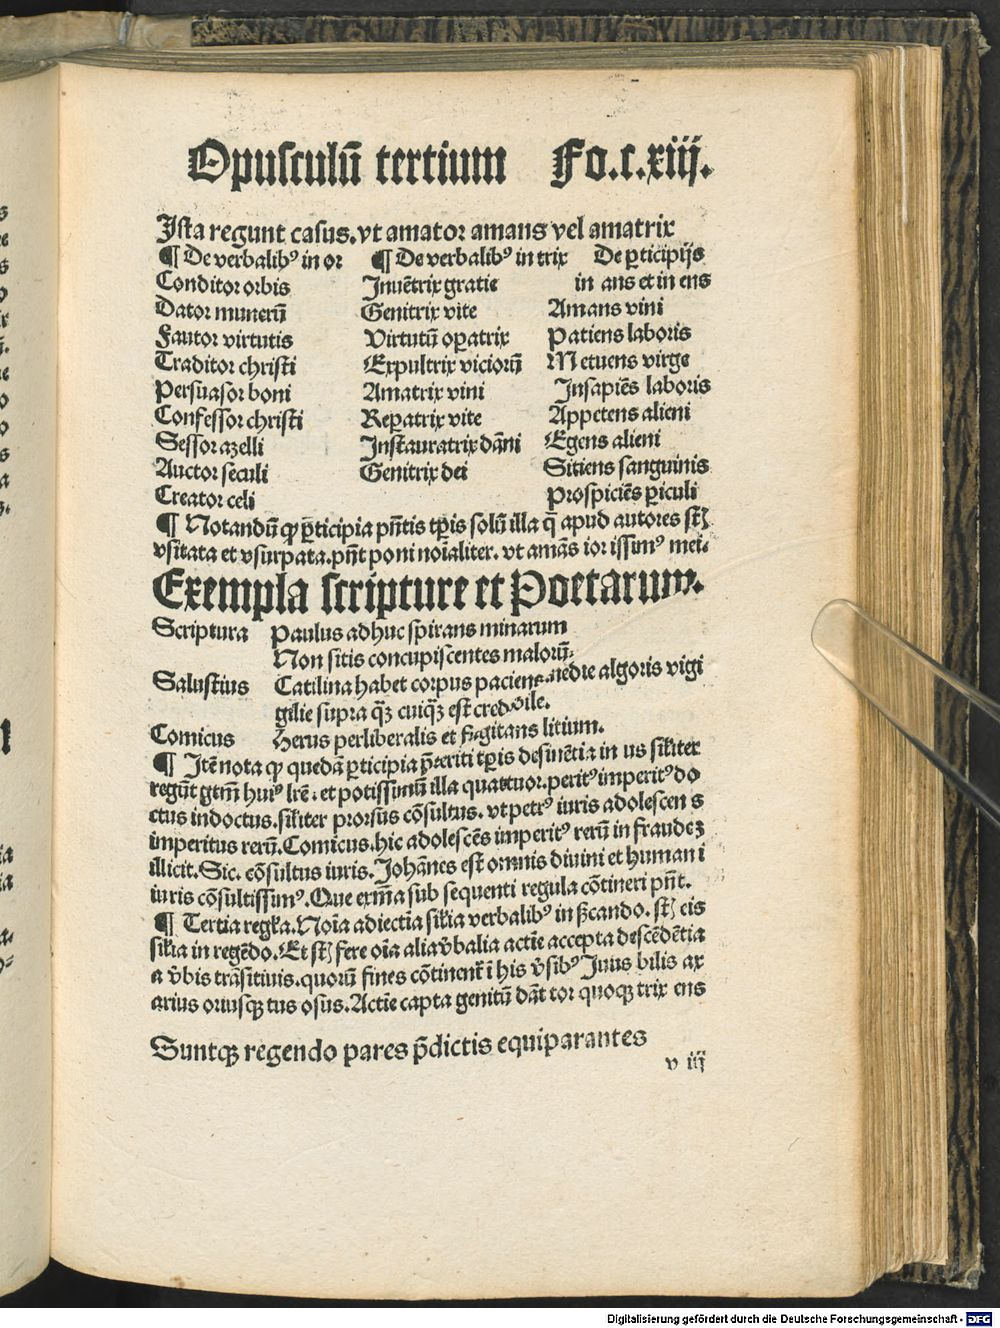 Opusculū tertium Fo.c.xiij.
Ista regunt casus.vt amator amans vel amatrix
¶ De verbalibꝰ in or ¶ De verbalibꝰ in trix De ꝑticipijs
Conditor orbis Inuētrix gratie in ans et in ens
Dator munerū Genitrix vite Amans vini
Fautor virtutis Virtutū oꝑatrix Patiens laboris
Traditor christi Expultrix viciorū Metuens virge
Persuasor boni Amatrix vini Insapiēs laboris
Confessor christi Reꝑatrix vite Appetens alieni
Sessor azelli Instauratrix dāni Egens alieni
Auctor seculi Genitrix dei Sitiens sanguinis
Creator celi Prospiciēs ꝑiculi
¶ Notandū ꝙ ꝑticipia pn̄tis tꝑis solū illa q̄ apud autores st̄
vsitata et vsurpata.pn̄t poni noīaliter. vt amās ior issimꝰ mei.
Exempla scripture et Poetarum.
Scriptura Paulus adhuc spirans minarum
Non sitis concupiscentes malorū.
Salustius Catilina habet corpus paciens nedie algoris vigi
gilie supra qꝫ cuiqꝫ est credibile.
Comicus Herus perliberalis et fugitans litium.
¶ Itē nota ꝙ quedā ꝑticipia p̄teriti tꝑis desinētia in us sil̄iter
regūt gtm̄ huiꝰ lr̄e. et potissimū illa quattuor.peritꝰ imperitꝰ do
ctus indoctus.sil̄iter prorsus cōsultus. vt petrꝰ iuris adolescen s
imperitus rerū.Comicus.hic adolescēs imperitꝰ rerū in fraudeꝫ
illicit.Sic. cōsultus iuris.Johānes est omnis diuini et humani
iuris cōsultissimꝰ.Que exm̄a sub sequenti regula cōtineri pn̄t.
¶ Tertia regl̄a.Noīa adiectīa sil̄ia verbalibꝰ in s̄cando. st̄ eis
sil̄ia in regēdo.Et st̄ fere oīa alia v̄balia actīe accepta descēdētia
a v̄bis trāsitiuis.quorū fines cōtinent̄ ī his v̄sibꝰ Iuus bilis ax
arius oriusqꝫ tus osus.Actīe capta genitū dāt tor quoqꝫ trix ens
Suntqꝫ regendo pares p̄dictis equiparantes
v iij
Digitalisierung gefördert durch die Deutsche Forschungsgemeinschaft - DFG